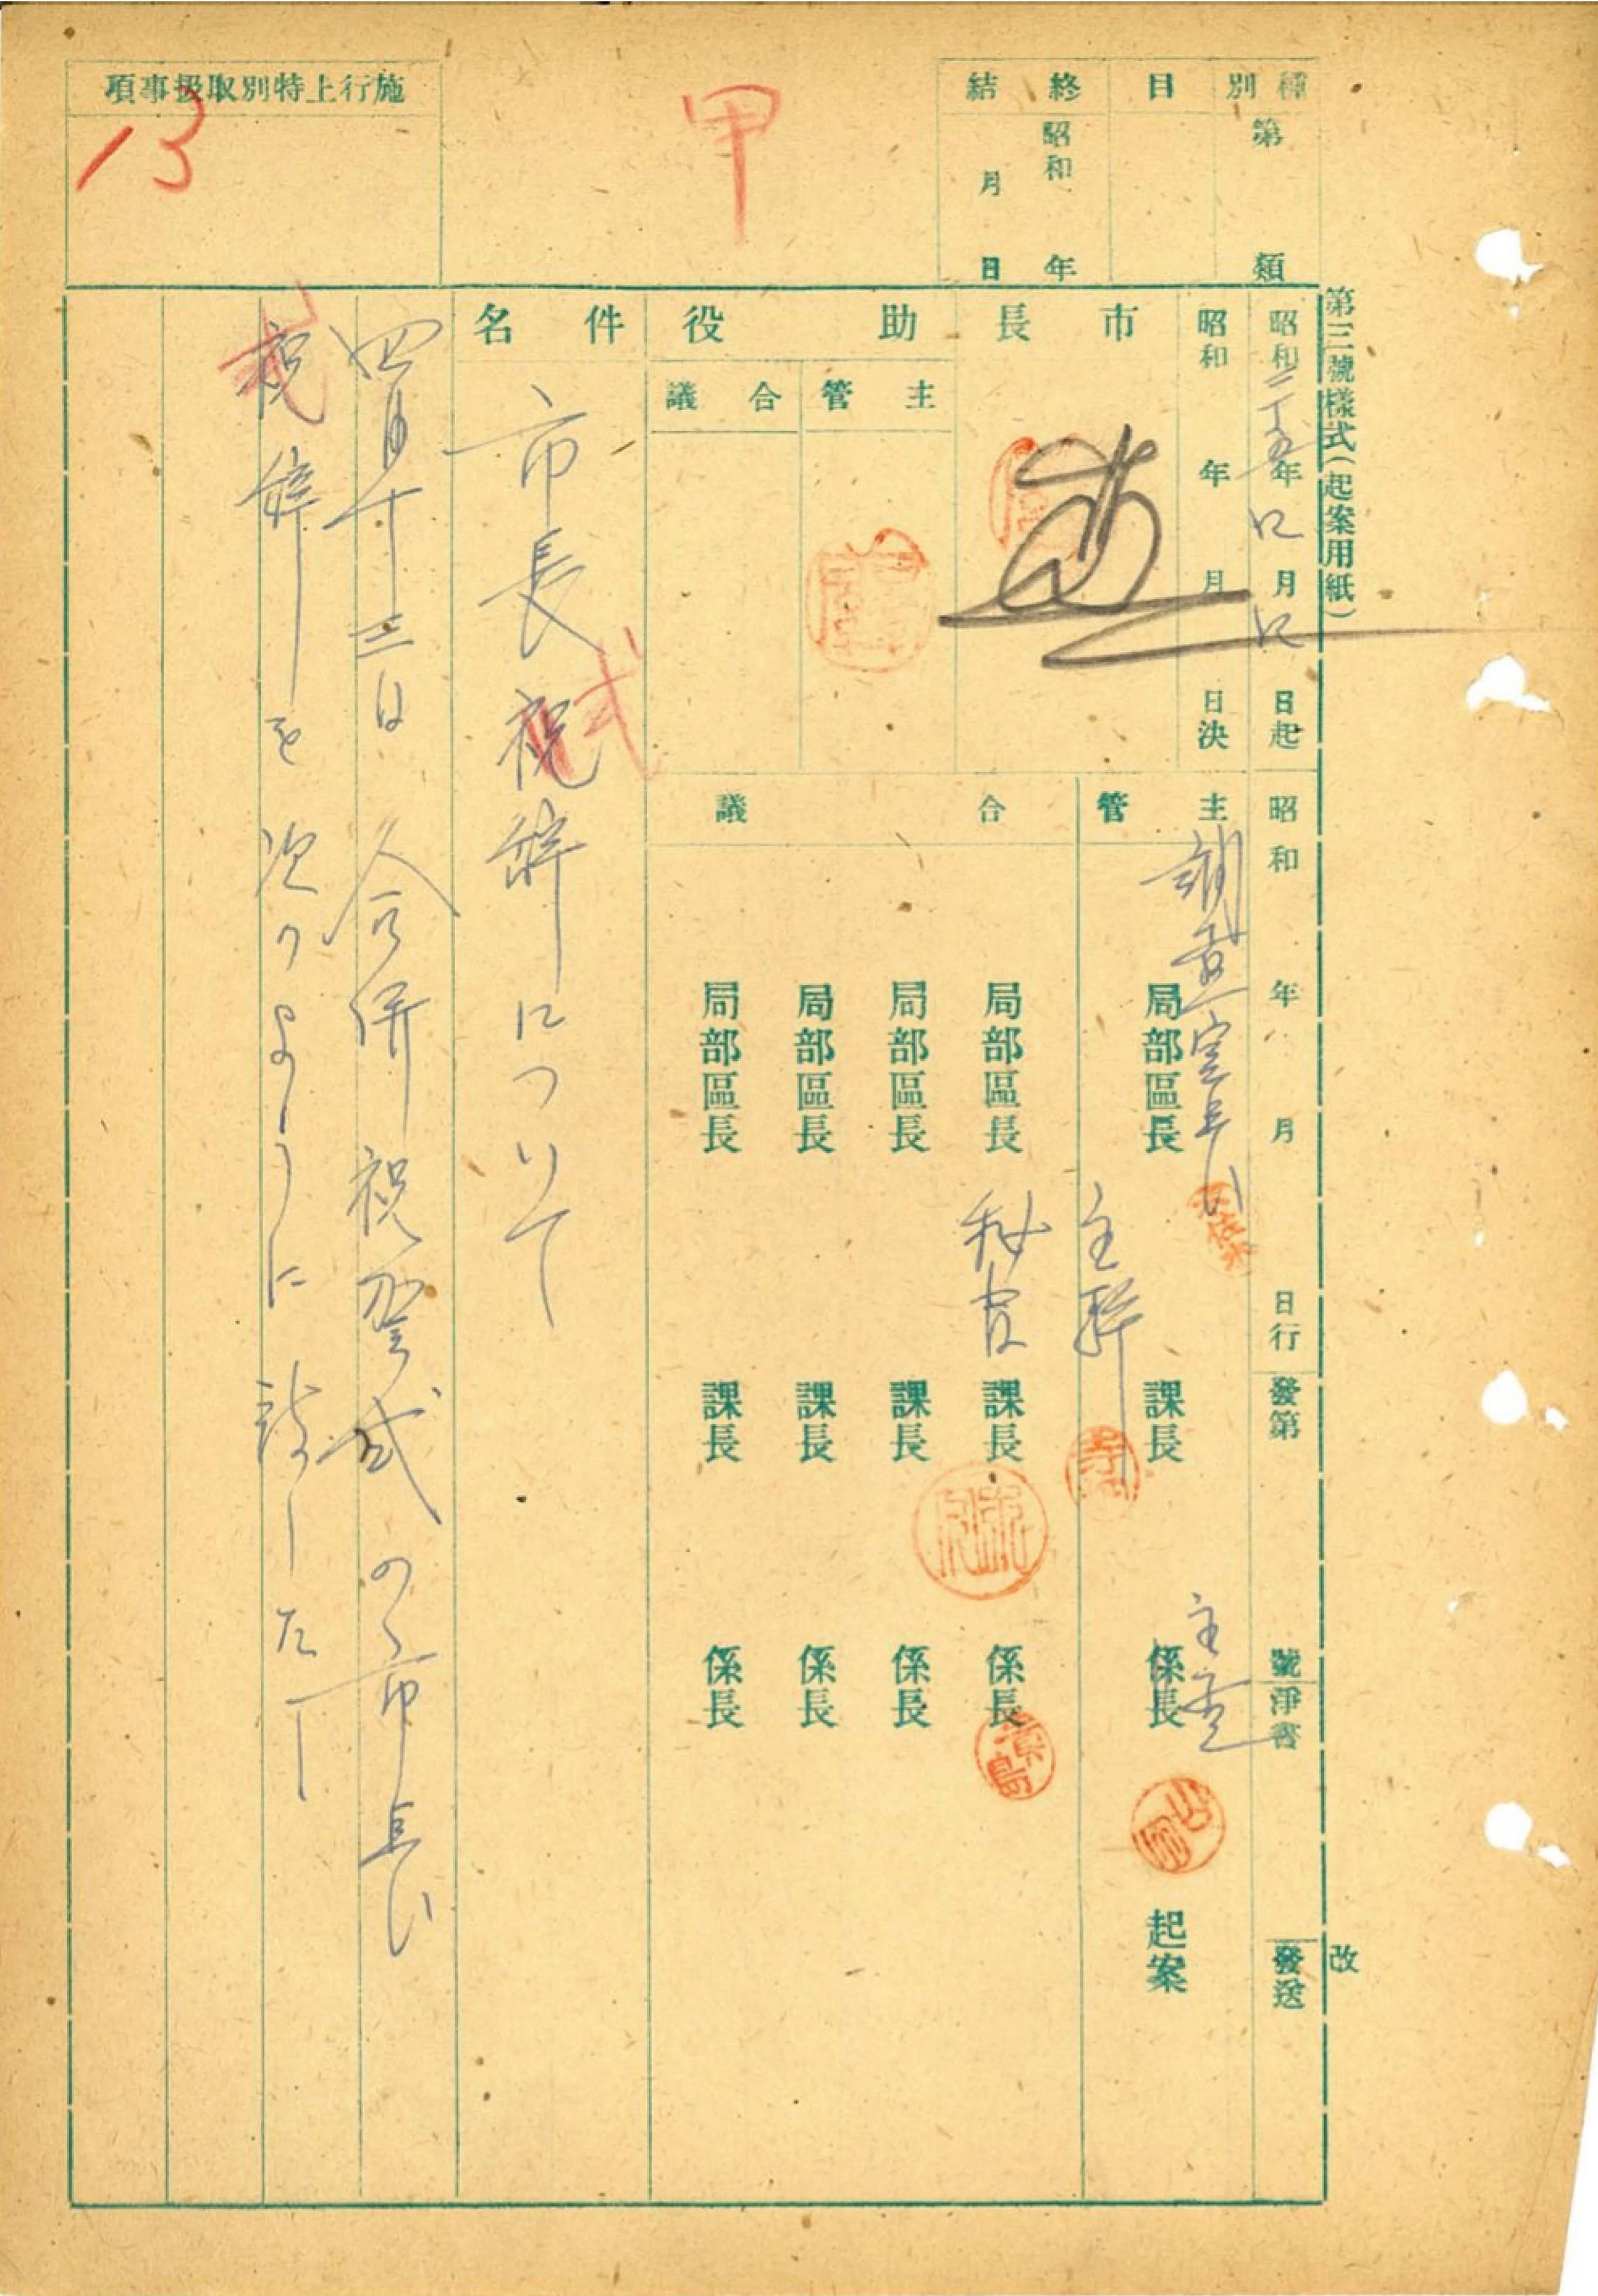 第三號樣式(起案用紙)
改
種別
第 類
目
終結
昭和 年
月 日
甲
施行上特別取扱事項
13
昭和二五年4月4日起
昭和 年 月 日行
發第 號
淨書
發送
昭和 年 月 日決
市長
助役
主管
合議
主管
調査室長
局部區長
主幹
課長
主査
係長
起案
合議
局部區長
秘書
課長
係長
局部區長
課長
係長
局部區長
課長
係長
局部區長
課長
係長
件名
市長祝辞について
式
四月十三日合併祝賀式の市長
祝辞を次のように致したい
式